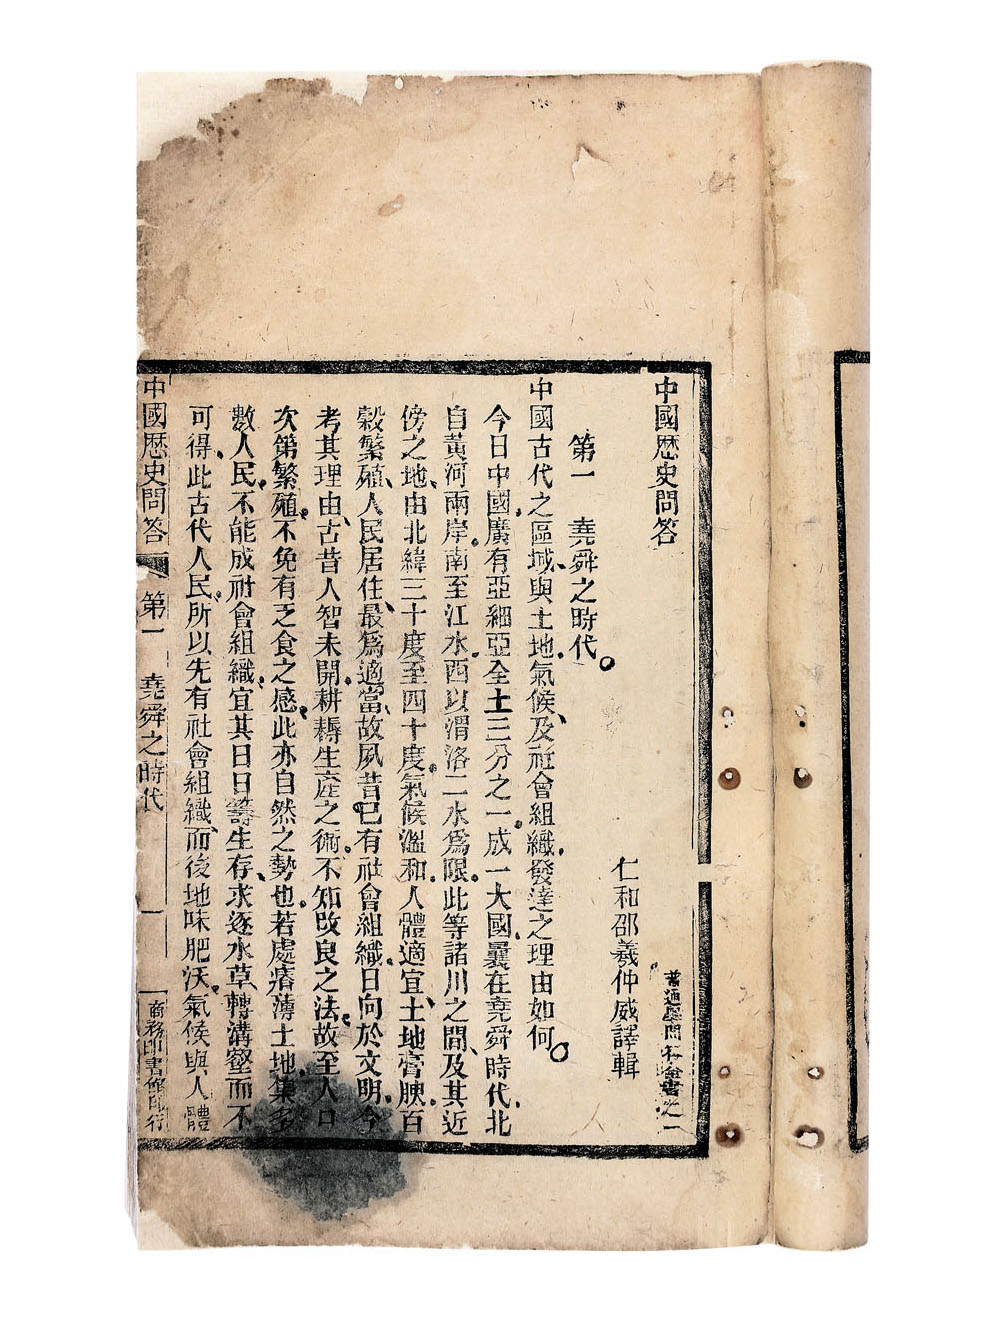 中國歷史問答
普通學問答全書之一
仁和邵羲仲威譯輯
第一　堯舜之時代。
中國古代之區域與土地氣候、及社會組織發達之理由如何。
今日中國、廣有亞細亞全土三分之一、成一大國、曩在堯舜時代、北
自黃河兩岸、南至江水、西以渭洛二水爲限、此等諸川之間、及其近
傍之地、由北緯三十度至四十度、氣候溫和、人體適宜、土地膏腴、百
穀繁殖、人民居住、最爲適當、故夙昔已有社會組織、日向於文明、今
考其理由、古昔人智未開、耕耨生產之術、不知改良之法、故至人口
次第繁殖、不免有乏食之感、此亦自然之勢也、若處瘠薄土地、集多
數人民、不能成社會組織、宜其日日籌生存、求逐水草、轉溝壑而不
可得、此古代人民、所以先有社會組織、而後地味肥沃、氣候與人體
中國歷史問答　第一　堯舜之時代　一　商務印書館印行